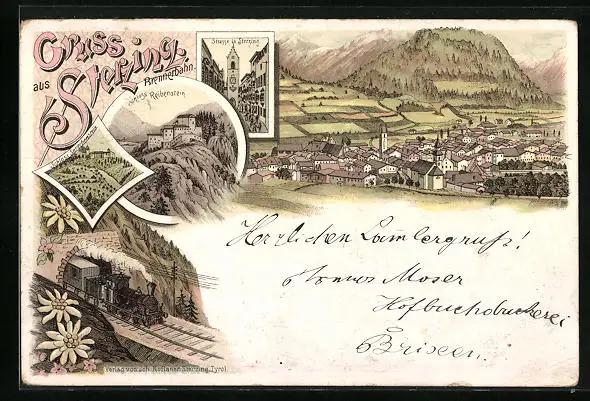 Gruss
aus
Sterzing.
Brennerbahn.
Strasse in Sterzing
Schloss Reifenstein
Herzlichen
Moser
Hofbuchdruckerei
Brixen.
Verlag von Joh. Sterzing, Tyrol.